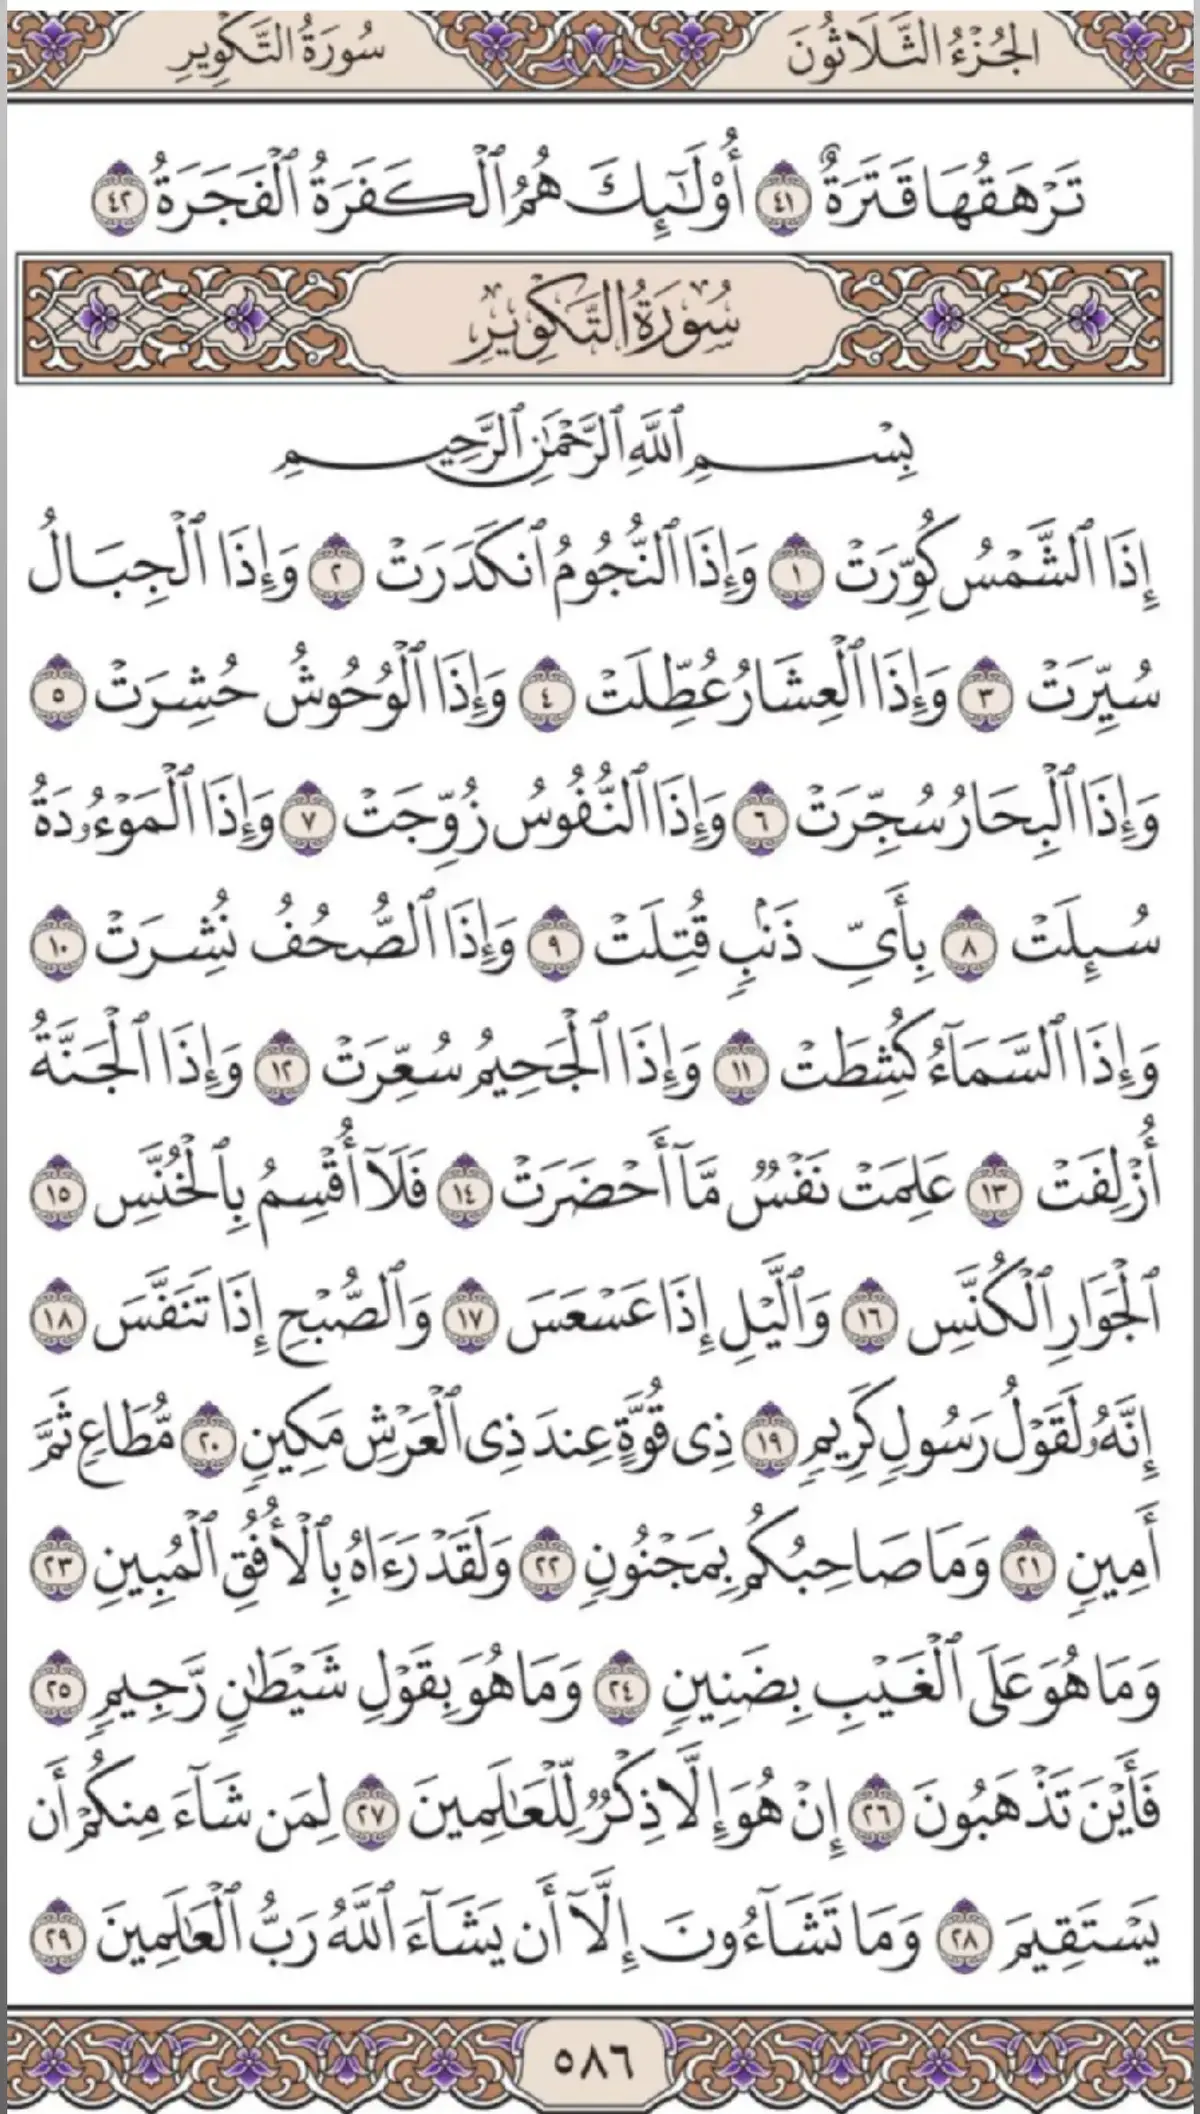 الجُزْءُ الثَّلَاثُونَ
سُورَةُ التَّكْوِيرِ
تَرْهَقُهَا قَتَرَةٌ ٤١ أُوْلَٰٓئِكَ هُمُ ٱلْكَفَرَةُ ٱلْفَجَرَةُ ٤٢
سُورَةُ التَّكْوِيرِ
بِسْمِ ٱللَّهِ ٱلرَّحْمَٰنِ ٱلرَّحِيمِ
إِذَا ٱلشَّمْسُ كُوِّرَتْ ١ وَإِذَا ٱلنُّجُومُ ٱنكَدَرَتْ ٢ وَإِذَا ٱلْجِبَالُ
سُيِّرَتْ ٣ وَإِذَا ٱلْعِشَارُ عُطِّلَتْ ٤ وَإِذَا ٱلْوُحُوشُ حُشِرَتْ ٥
وَإِذَا ٱلْبِحَارُ سُجِّرَتْ ٦ وَإِذَا ٱلنُّفُوسُ زُوِّجَتْ ٧ وَإِذَا ٱلْمَوْءُۥدَةُ
سُئِلَتْ ٨ بِأَىِّ ذَنۢبٍ قُتِلَتْ ٩ وَإِذَا ٱلصُّحُفُ نُشِرَتْ ١٠
وَإِذَا ٱلسَّمَآءُ كُشِطَتْ ١١ وَإِذَا ٱلْجَحِيمُ سُعِّرَتْ ١٢ وَإِذَا ٱلْجَنَّةُ
أُزْلِفَتْ ١٣ عَلِمَتْ نَفْسٌ مَّآ أَحْضَرَتْ ١٤ فَلَآ أُقْسِمُ بِٱلْخُنَّسِ ١٥
ٱلْجَوَارِ ٱلْكُنَّسِ ١٦ وَٱلَّيْلِ إِذَا عَسْعَسَ ١٧ وَٱلصُّبْحِ إِذَا تَنَفَّسَ ١٨
إِنَّهُۥ لَقَوْلُ رَسُولٍ كَرِيمٍ ١٩ ذِى قُوَّةٍ عِندَ ذِى ٱلْعَرْشِ مَكِينٍ ٢٠ مُّطَاعٍ ثَمَّ
أَمِينٍ ٢١ وَمَا صَاحِبُكُم بِمَجْنُونٍ ٢٢ وَلَقَدْ رَءَاهُ بِٱلْأُفُقِ ٱلْمُبِينِ ٢٣
وَمَا هُوَ عَلَى ٱلْغَيْبِ بِضَنِينٍ ٢٤ وَمَا هُوَ بِقَوْلِ شَيْطَٰنٍ رَّجِيمٍ ٢٥
فَأَيْنَ تَذْهَبُونَ ٢٦ إِنْ هُوَ إِلَّا ذِكْرٌ لِّلْعَٰلَمِينَ ٢٧ لِمَن شَآءَ مِنكُمْ أَن
يَسْتَقِيمَ ٢٨ وَمَا تَشَآءُونَ إِلَّآ أَن يَشَآءَ ٱللَّهُ رَبُّ ٱلْعَٰلَمِينَ ٢٩
٥٨٦